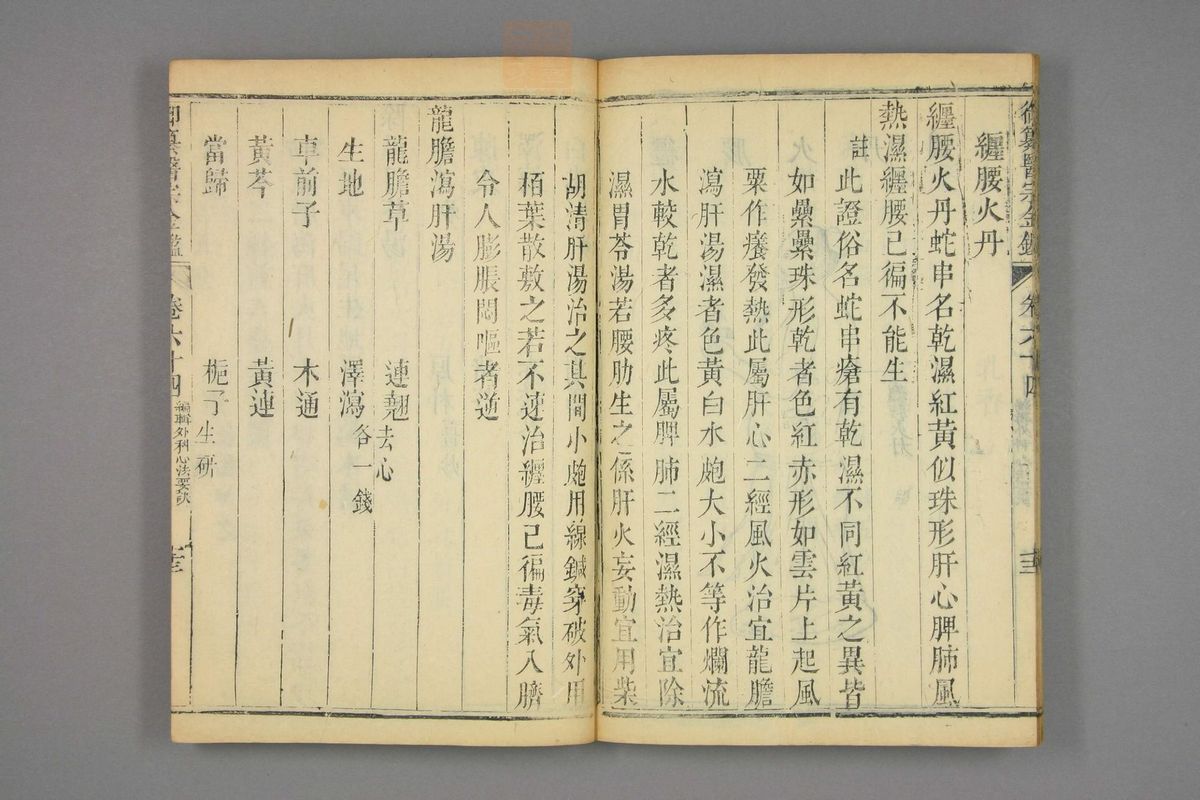 御纂醫宗金鑑 卷六十四
纏腰火丹
纏腰火丹蛇串名乾濕紅黃似珠形肝心脾肺風
熱濕纏腰已徧不能生
註此證俗名蛇串瘡有乾濕不同紅黃之異皆
如纍纍珠形乾者色紅赤形如雲片上起風
粟作癢發熱此屬肝心二經風火治宜龍膽
瀉肝湯濕者色黃白水皰大小不等作爛流
水較乾者多疼此屬脾肺二經濕熱治宜除
濕胃苓湯若腰肋生之係肝火妄動宜用柴
胡清肝湯治之其間小皰用線鍼穿破外用
栢葉散敷之若不速治纏腰已徧毒氣入臍
令人膨脹悶嘔者逆
龍膽瀉肝湯
龍膽草 連翹去心
生地 澤瀉各一錢
車前子 木通
黃芩 黃連
當歸 梔子生研
御纂醫宗金鑑 卷六十四 編輯外科心法要訣